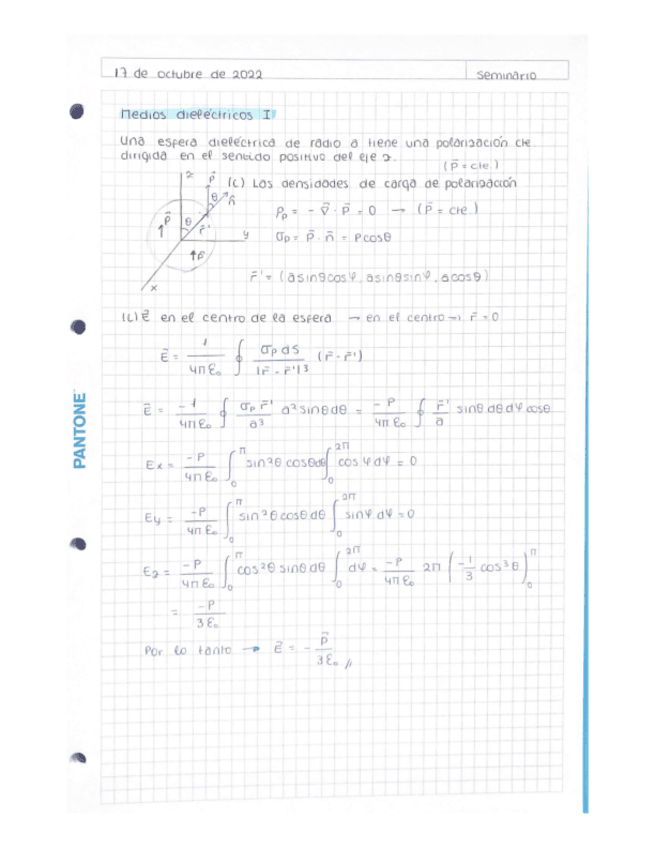 17 de octubre de 2022
Seminario
Medios dieléctricos I
Una esfera dieléctrica de radio a tiene una polarización cte.
dirigida en el sentido positivo del eje z.
(P⃗ = cte.)
z P⃗ θ n̂
P⃗ θ r⃗' y
P⃗
x
(i) Las densidades de carga de polarización
ρp = - ∇⃗ · P⃗ = 0 → (P⃗ = cte.)
σp = P⃗ · n⃗ = P cosθ
r⃗' = (a sinθ cosφ, a sinθ sinφ, a cosθ)
(ii) E⃗ en el centro de la esfera → en el centro → r⃗ = 0
E⃗ = 1/4πε₀ ∮ σp dS/|r⃗ - r⃗'|³ (r⃗ - r⃗')
E⃗ = -1/4πε₀ ∮ σp r⃗'/a³ a² sinθ dθ = -P/4πε₀ ∮ r⃗'/a sinθ dθ dφ cosθ
Ex = -P/4πε₀ ∫₀^π sin²θ cosθ dθ ∫₀^2π cosφ dφ = 0
Ey = -P/4πε₀ ∫₀^π sin²θ cosθ dθ ∫₀^2π sinφ dφ = 0
Ez = -P/4πε₀ ∫₀^π cos²θ sinθ dθ ∫₀^2π dφ = -P/4πε₀ 2π (-1/3 cos³θ)₀^π
= -P/3ε₀
Por lo tanto → E⃗ = - P⃗/3ε₀ //
PANTONE